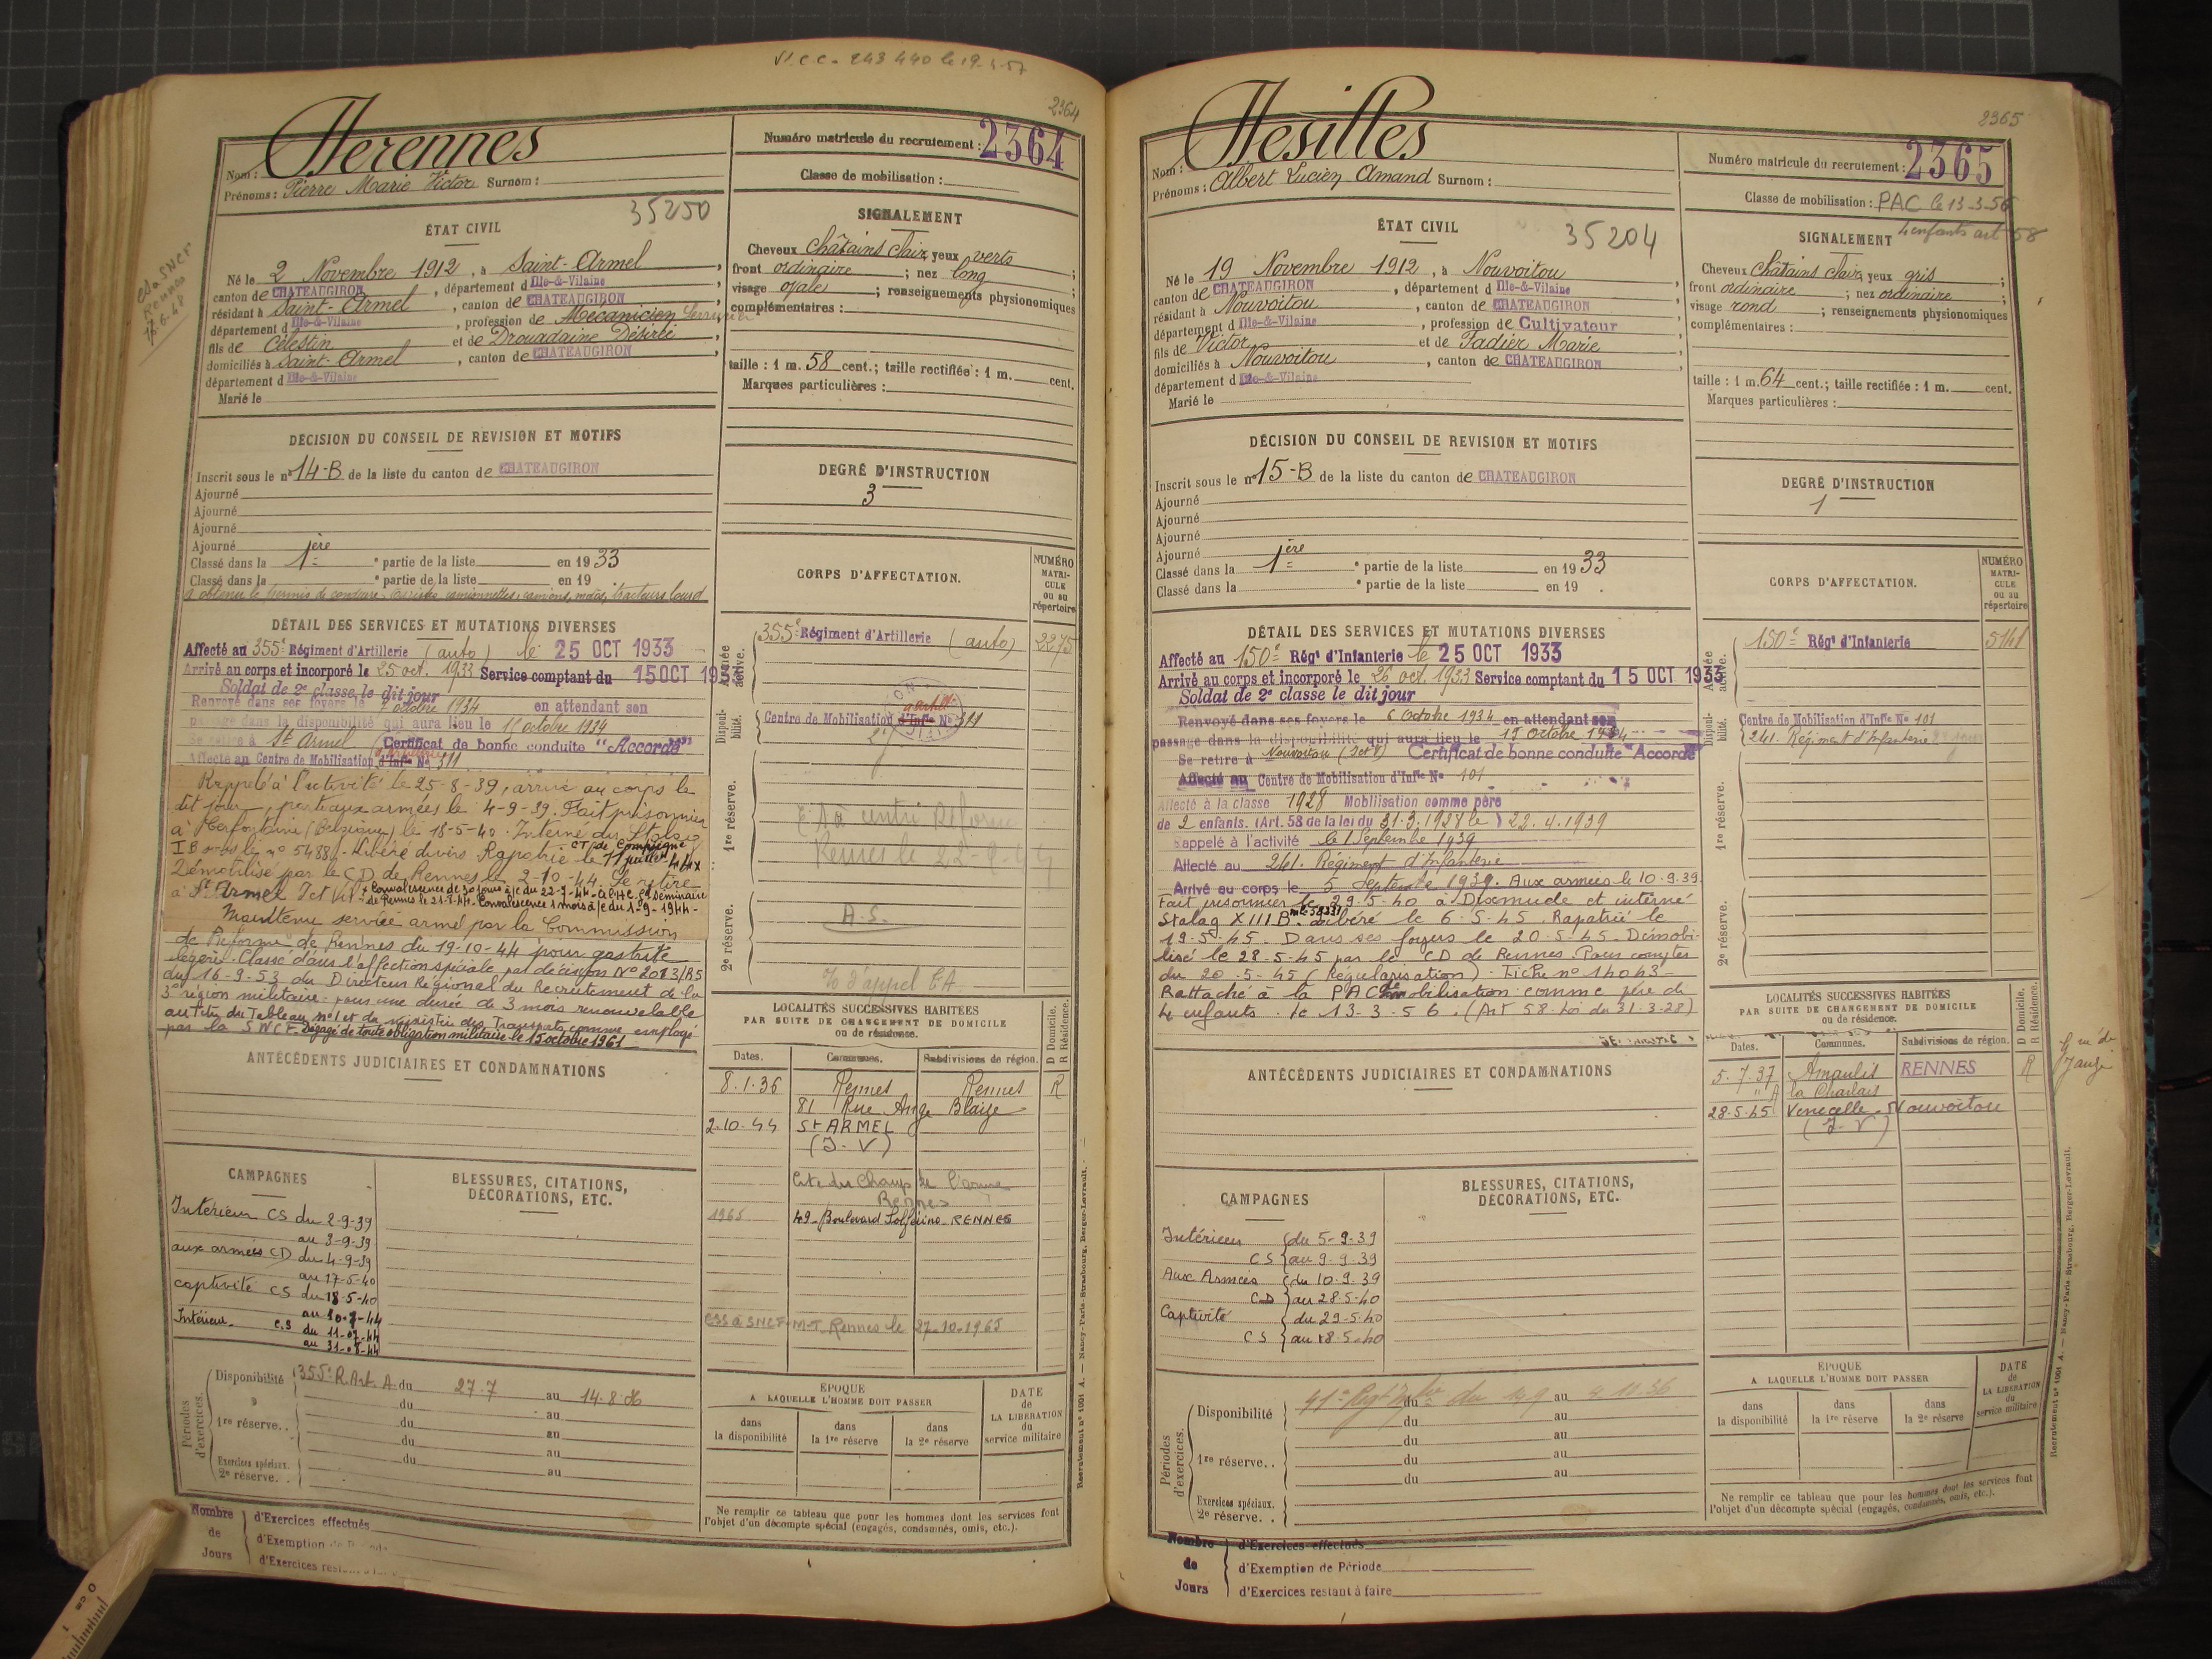 2364
Numéro matricule du recrutement : 2364
Nom : Herennes
Prénoms : Pierre Marie Victor Surnom :
Classe de mobilisation :
35250
ÉTAT CIVIL
Né le 2 Novembre 1912, à Saint-Armel,
canton de CHATEAUGIRON, département d Ille-&-Vilaine
résidant à Saint-Armel, canton de CHATEAUGIRON
département d Ille-&-Vilaine, profession de Mécanicien
fils de Célestin et de Drouadaine Désirée
domiciliés à Saint-Armel, canton de CHATEAUGIRON
département d Ille-&-Vilaine
Marié le
SIGNALEMENT
Cheveux châtains clair, yeux verts
front ordinaire ; nez long ;
visage ovale ; renseignements physionomiques
complémentaires :
taille : 1 m. 58 cent. ; taille rectifiée : 1 m. cent.
Marques particulières :
DÉCISION DU CONSEIL DE REVISION ET MOTIFS
Inscrit sous le n° 14-B de la liste du canton de CHATEAUGIRON
Ajourné
Ajourné
Ajourné
Ajourné
Classé dans la 1ère partie de la liste en 1933
Classé dans la partie de la liste en 19
DEGRÉ D'INSTRUCTION
3
DÉTAIL DES SERVICES ET MUTATIONS DIVERSES
Affecté au 355e Régiment d'Artillerie (auto) le 25 OCT 1933
Arrivé au corps et incorporé le 25 oct. 1933 Service comptant du 15 OCT 1933
Soldat de 2e classe le dit jour
Renvoyé dans ses foyers le 7 octobre 1934 en attendant son
passage dans la disponibilité qui aura lieu le 15 octobre 1934
Se retire à St Armel Certificat de bonne conduite "Accordé"
Affecté au Centre de Mobilisation d'Infie N° 311
Rappelé à l'activité le 25-8-39, arrivé au corps le
dit jour, parti aux armées le 4-9-39. Fait prisonnier
à (Belgique) le 18-5-40. Interné du Stalag
I B sous le n° 5488. Libéré divers. Rapatrié le 11 juillet 44 x
CT de Compiègne
Démobilisé par le CD de Rennes le 2-10-44. Se retire
à St Armel Ict Vil x Convalescence de 30 jours à/c du 22-7-44
de Rennes le 21-8-44. Convalescence 1 mois à/c du 1-9-1944-
Maintenu service armé par la Commission
de Réforme de Rennes du 19-10-44 pour gastrite
légère. Classé dans l'affection spéciale par décision N° 2013/RS
du 16-9-53 du Directeur Régional du Recrutement de la
3e région militaire pour une durée de 3 mois renouvelable
au titre du Tableau n°1 et du ministère des Transports comme employé
par la SNCF. Dégagé de toute obligation militaire le 15 octobre 1961
CORPS D'AFFECTATION.
NUMÉRO MATRICULE ou au répertoire
Armée active.
355e Régiment d'Artillerie (auto) 2275
Disponibilité.
Centre de Mobilisation d'Infie N° 311
1re réserve.
2e réserve.
A.S.
ANTÉCÉDENTS JUDICIAIRES ET CONDAMNATIONS
LOCALITÉS SUCCESSIVES HABITÉES
PAR SUITE DE CHANGEMENT DE DOMICILE
ou de résidence.
D Domicile. R Résidence.
Dates. Communes. Subdivisions de région.
8.1.36 Rennes Rennes R
81 Rue Ange Blaize
2.10.44 St ARMEL
(I-V)
Rennes
1965 49-Boulevard Solférino-RENNES
ESS à SNCF-MT Rennes le 27-10-1965
CAMPAGNES
Intérieur CS du 2-9-39
au 3-9-39
aux armées CD du 4-9-39
au 17-5-40
captivité CS du 18-5-40
au 10-7-44
Intérieur C.S du 11-07-44
au 31-08-44
BLESSURES, CITATIONS, DÉCORATIONS, ETC.
Périodes d'exercices.
Disponibilité 355e R. Art. A. du 27.7 au 14.8.36
du au
1re réserve.. du au
du au
du au
Exercices spéciaux.
2e réserve. . au
ÉPOQUE
A LAQUELLE L'HOMME DOIT PASSER
dans la disponibilité
dans la 1re réserve
dans la 2e réserve
DATE de LA LIBERATION du service militaire
Ne remplir ce tableau que pour les hommes dont les services font
l'objet d'un décompte spécial (engagés, condamnés, omis, etc.).
Recrutement n° 1001 A. — Nancy-Paris-Strasbourg, Berger-Levrault.
Nombre de Jours
d'Exercices effectués
d'Exemption
2365
Numéro matricule du recrutement : 2365
Nom : Hesilles
Prénoms : Albert Lucien Amand Surnom :
Classe de mobilisation : PAC le 13-3-56
4 enfants art 58
35204
ÉTAT CIVIL
Né le 19 Novembre 1912, à Nouvoitou
canton de CHATEAUGIRON, département d Ille-&-Vilaine
résidant à Nouvoitou, canton de CHATEAUGIRON
département d Ille-&-Vilaine, profession de Cultivateur
fils de Victor et de Fadier Marie
domiciliés à Nouvoitou, canton de CHATEAUGIRON
département d Ille-&-Vilaine
Marié le
SIGNALEMENT
Cheveux châtains clair, yeux gris ;
front ordinaire ; nez ordinaire ;
visage rond ; renseignements physionomiques
complémentaires :
taille : 1 m. 64 cent. ; taille rectifiée : 1 m. cent.
Marques particulières :
DÉCISION DU CONSEIL DE REVISION ET MOTIFS
Inscrit sous le n° 15-B de la liste du canton de CHATEAUGIRON
Ajourné
Ajourné
Ajourné
Ajourné
Classé dans la 1ère partie de la liste en 1933
Classé dans la partie de la liste en 19
DEGRÉ D'INSTRUCTION
1
DÉTAIL DES SERVICES ET MUTATIONS DIVERSES
Affecté au 150e Régt d'Infanterie le 25 OCT 1933
Arrivé au corps et incorporé le 26 oct. 1933 Service comptant du 15 OCT 1933
Soldat de 2e classe le dit jour
Renvoyé dans ses foyers le 6 Octobre 1934 en attendant son
passage dans la disponibilité qui aura lieu le 15 Octobre 1934
Se retire à Nouvoitou (I et V) Certificat de bonne conduite "Accordé"
Affecté au Centre de Mobilisation d'Infie N° 101
Affecté à la classe 1928 Mobilisation comme père
de 2 enfants. (Art. 58 de la loi du 31.3.1928 le) 22.4.1939
Rappelé à l'activité le 1 Septembre 1939
Affecté au 241. Régiment d'Infanterie
Arrivé au corps le 5 Septembre 1939. Aux armées le 10.9.39.
Fait prisonnier le 29.5.40 à Dixmude et interné
Stalag XIII B. Libéré le 6.5.45. Rapatrié le
19.5.45. Dans ses foyers le 20.5.45. Démobi-
lisé le 28.5.45 par le CD de Rennes. Pour compter
du 20.5.45 (Régularisation). Fiche n° 14043-
Rattaché à la PAC de mobilisation comme père de
4 enfants. le 13.3.56. (Art 58. Loi du 31-3-28)
CORPS D'AFFECTATION.
NUMÉRO MATRICULE ou au répertoire
Armée active.
150e Régt d'Infanterie 5141
Disponibilité.
Centre de Mobilisation d'Infie N° 101
241. Régiment d'Infanterie
1re réserve.
2e réserve.
ANTÉCÉDENTS JUDICIAIRES ET CONDAMNATIONS
LOCALITÉS SUCCESSIVES HABITÉES
PAR SUITE DE CHANGEMENT DE DOMICILE
ou de résidence.
D Domicile. R Résidence.
Dates. Communes. Subdivisions de région.
5.7.37 Amanlis RENNES R
28.5.45 Venecelle. Nouvoitou
(I-V)
CAMPAGNES
Intérieur du 5-9-39
CS au 9-9-39
Aux Armées du 10.9.39
CD au 28.5.40
Captivité du 29-5-40
CS au 18-5-40
BLESSURES, CITATIONS, DÉCORATIONS, ETC.
Périodes d'exercices.
Disponibilité
du au
1re réserve.. du au
du au
du au
Exercices spéciaux.
2e réserve. .
ÉPOQUE
A LAQUELLE L'HOMME DOIT PASSER
dans la disponibilité
dans la 1re réserve
dans la 2e réserve
DATE de LA LIBERATION du service militaire
Ne remplir ce tableau que pour les hommes dont les services font
l'objet d'un décompte spécial (engagés, condamnés, omis, etc.).
Recrutement n° 1001 A. — Nancy-Paris-Strasbourg, Berger-Levrault.
Nombre de Jours
d'Exercices effectués
d'Exemption de Période
d'Exercices restant à faire